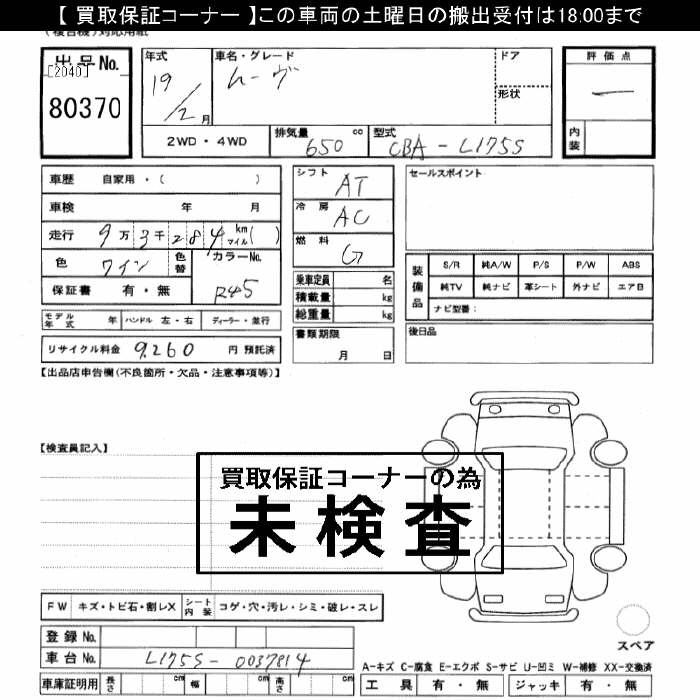 【 買取保証コーナー 】この車両の土曜日の搬出受付は18:00まで
(複合機)対応用紙
出品No.
[2040]
80370
年式
19/2月
車名・グレード
ムーヴ
ドア
形状
2WD・4WD
排気量 650 cc
型式 CBA-L175S
評価点
―
内装
車歴 自家用・( )
車検 年 月
走行 9万3千284 km マイル( )
色 ワイン 色替 カラーNo. R45
保証書 有・無
モデル年式 年 ハンドル 左・右 ディーラー・並行
リサイクル料金 9,260 円 預託済
シフト AT
冷房 AC
燃料 G
乗車定員 名
積載量 kg
総重量 kg
書類期限
月 日
セールスポイント
装備品
S/R 純A/W P/S P/W ABS
純TV 純ナビ 革シート 外ナビ エアB
ナビ型番:
後日品
【出品店申告欄(不良箇所・欠品・注意事項等)】
【検査員記入】
買取保証コーナーの為
未検査
FW キズ・トビ石・割レX シート内装 コゲ・穴・汚レ・シミ・破レ・スレ
登録No.
車台No. L175S-0037814
車庫証明用 長さ cm 幅 cm 高さ cm
スペア
A-キズ C-腐食 E-エクボ S-サビ U-凹ミ W-補修 XX-交換済
工具 有・無 ジャッキ 有・無